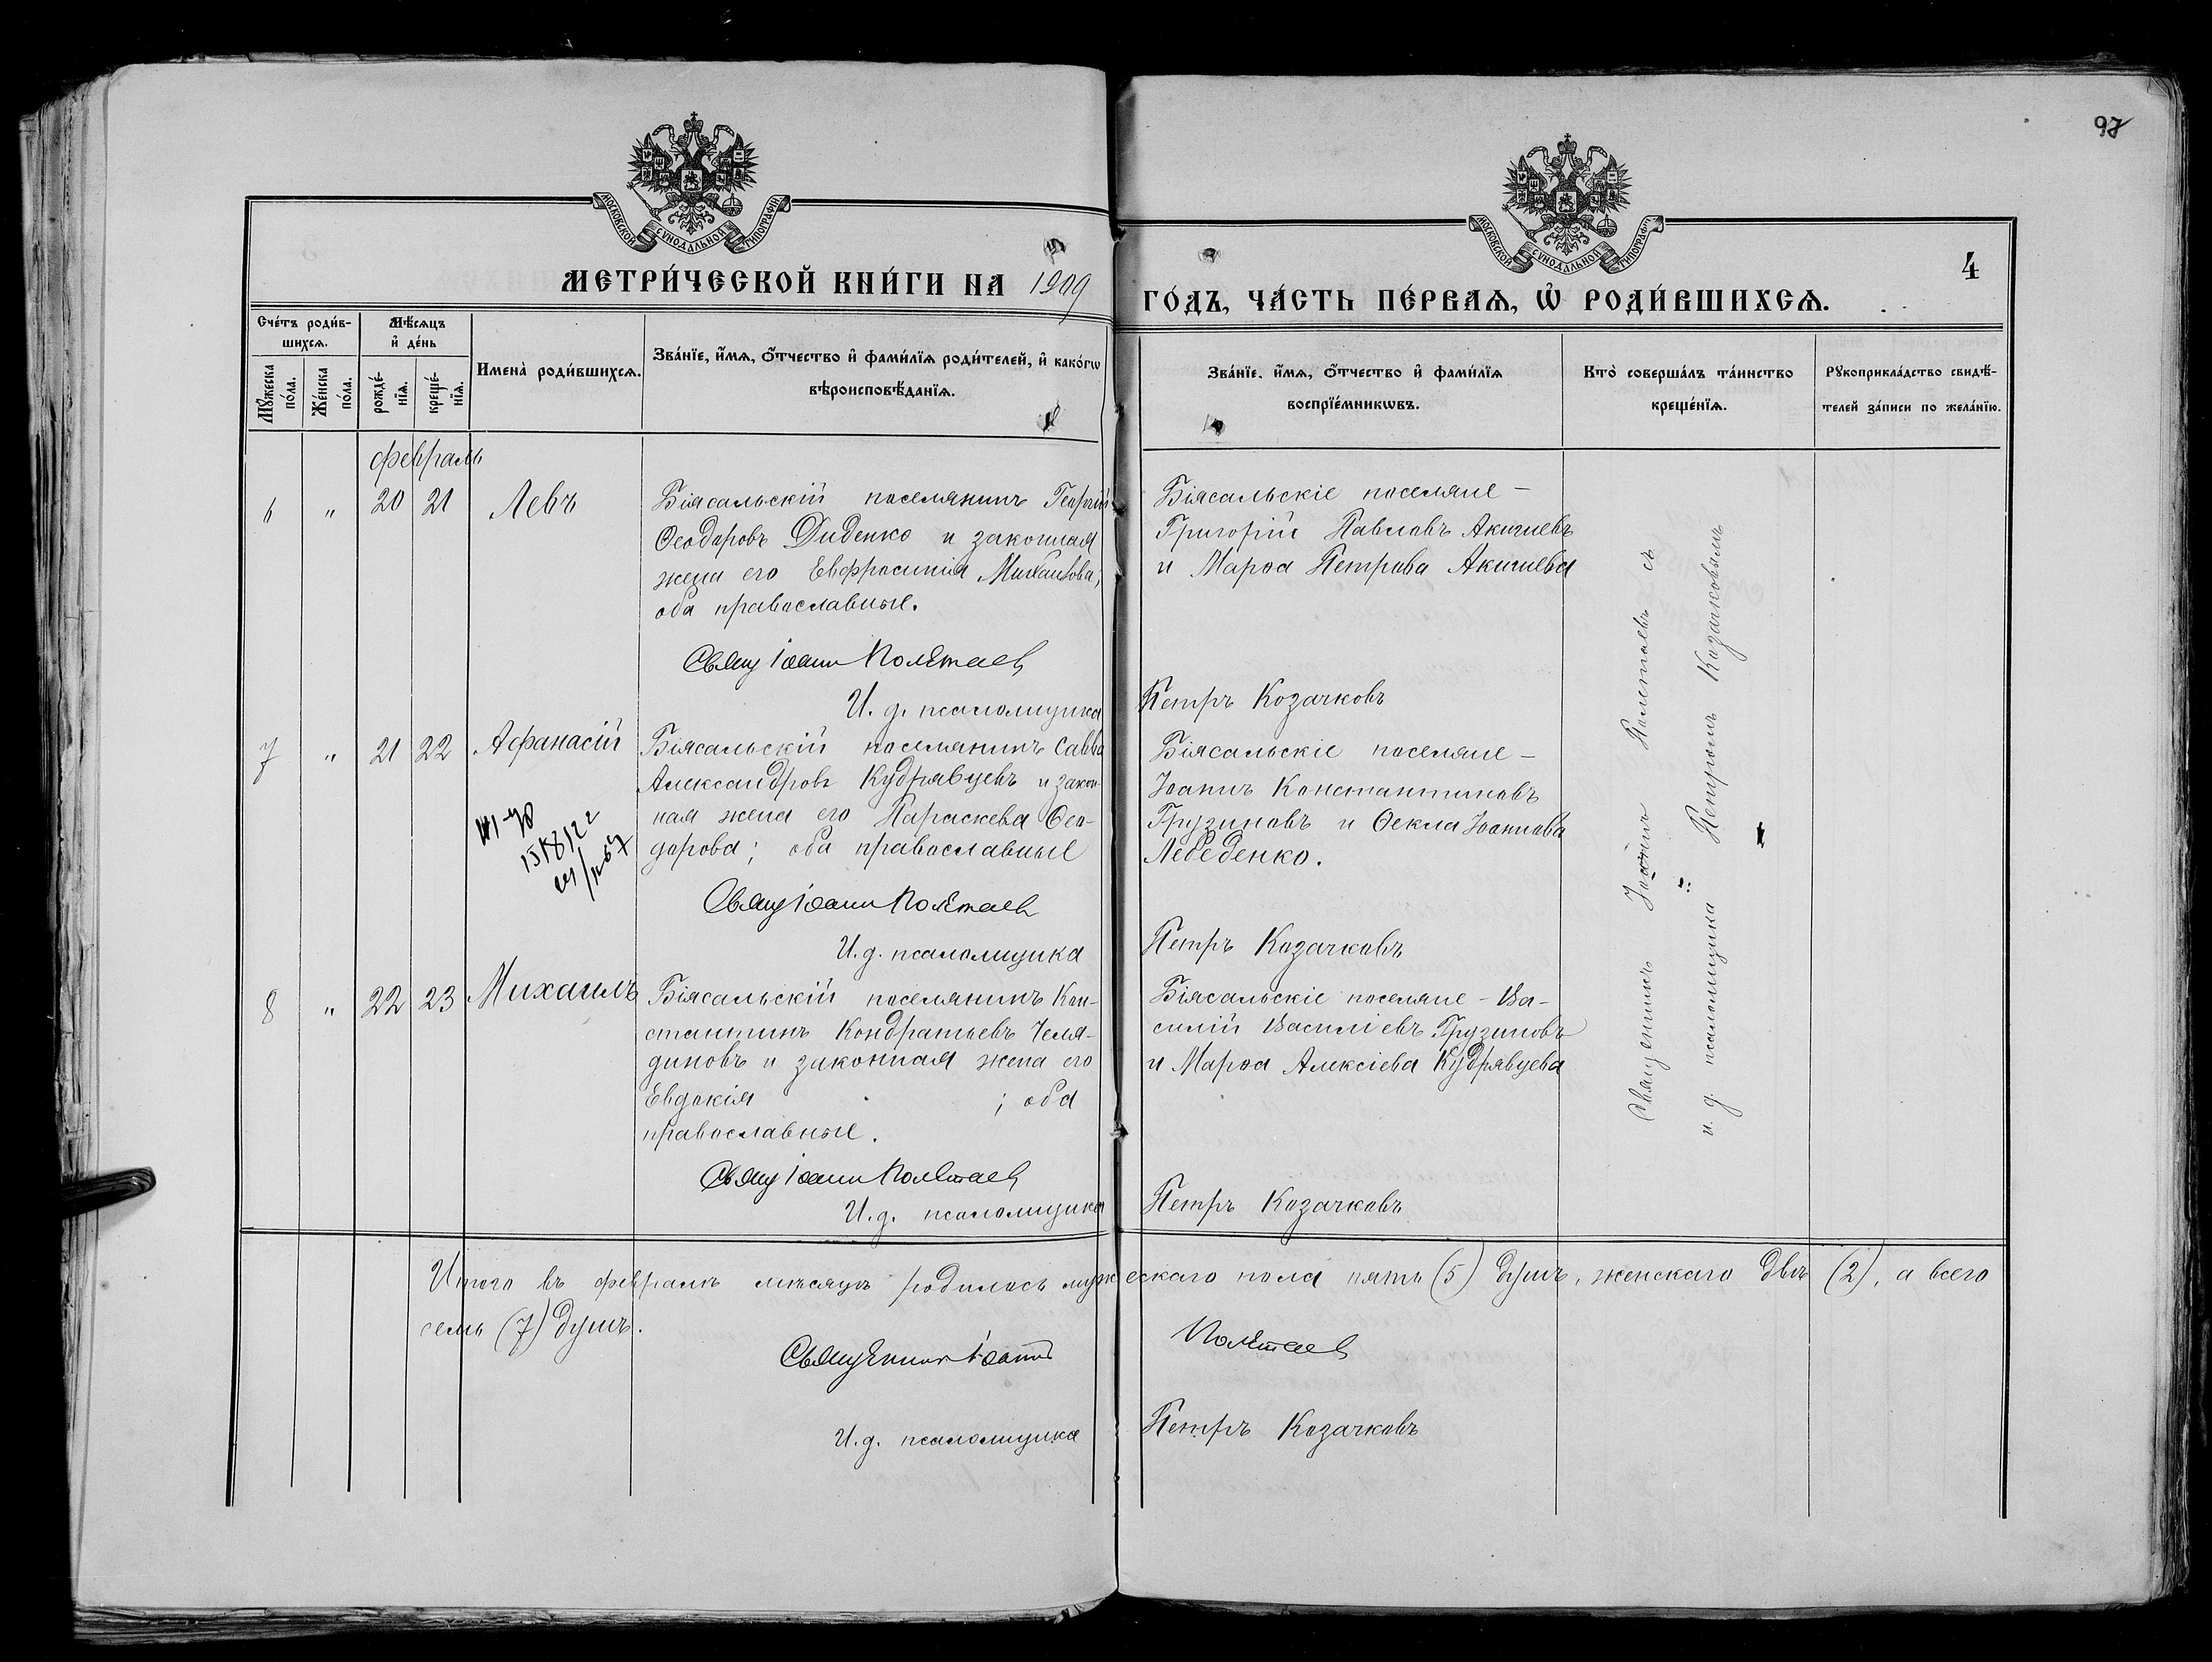 97
МОСКОВСКОЙ СУНОДАЛЬНОЙ ТИПОГРАФІИ
МОСКОВСКОЙ СУНОДАЛЬНОЙ ТИПОГРАФІИ
4
МЕТРИ́ЧЕСКОЙ КНИ́ГИ НА 1909
ГО́ДЪ, ЧА́СТЬ ПЕ́РВАѦ, Ѡ҆ РОДИ́ВШИХСѦ.
Сче́тъ роди́в-
шихсѧ.
Мꙋ́жеска по́ла.
Же́нска по́ла.
Мѣ́сѧцъ
и҆ де́нь
рожде́-нїѧ.
креще́-нїѧ.
Имена̀ роди́вшихсѧ.
Зва́нїе, и҆́мѧ, ѻ҆́тчество и҆ фами́лїѧ роди́телей, и҆ како́гѡ
вѣроисповѣ́данїѧ.
Зва́нїе, и҆́мѧ, ѻ҆́тчество и҆ фами́лїѧ
воспрїе́мникѡвъ.
Кто̀ соверша́лъ та́инство
креще́нїѧ.
Рꙋкоприкла́дство свидѣ́-
телей за́писи по жела́нїю.
февраль
6 " 20 21 Левъ
Біясальскій поселянинъ Георгій
Ѳеодоровъ Диденко и законная
жена его Евфросинія Михаилова;
оба православные.
Свящ Іоаннъ Полѣтаев
И. д. псаломщика
Біясальскіе поселяне -
Григорій Павловъ Акишевъ
и Марѳа Петрова Акишева
Петръ Козачковъ
7 " 21 22 Афанасій
15/8/22
Біясальскій поселянинъ Савва
Александровъ Кудрявцевъ и закон-
ная жена его Параскева Ѳео-
дорова; оба православные
Свящ Іоаннъ Полѣтаев
И. д. псаломщика
Біясальскіе поселяне -
Іоаннъ Константиновъ
Грузиновъ и Ѳекла Іоаннова
Лебеденко.
Петръ Козачковъ
8 " 22 23 Михаилъ
Біясальскій поселянинъ Кон-
стантинъ Кондратьевъ Челя-
диновъ и законная жена его
Евдокія ; оба
православные.
Свящ Іоаннъ Полѣтаев
И. д. псаломщика
Біясальскіе поселяне - Ва-
силій Василіевъ Грузиновъ
и Марѳа Алексіева Кудрявцева
Петръ Козачковъ
Священникъ Іоаннъ Полетаевъ съ
и. д. псаломщика Петромъ Козачковымъ
Итого въ февралѣ мѣсяцѣ родилось мужескаго пола пять (5) душъ, женскаго двѣ (2), а всего
семь (7) душъ.
Священник Іоаннъ Полѣтаев
И. д. псаломщика Петръ Козачковъ